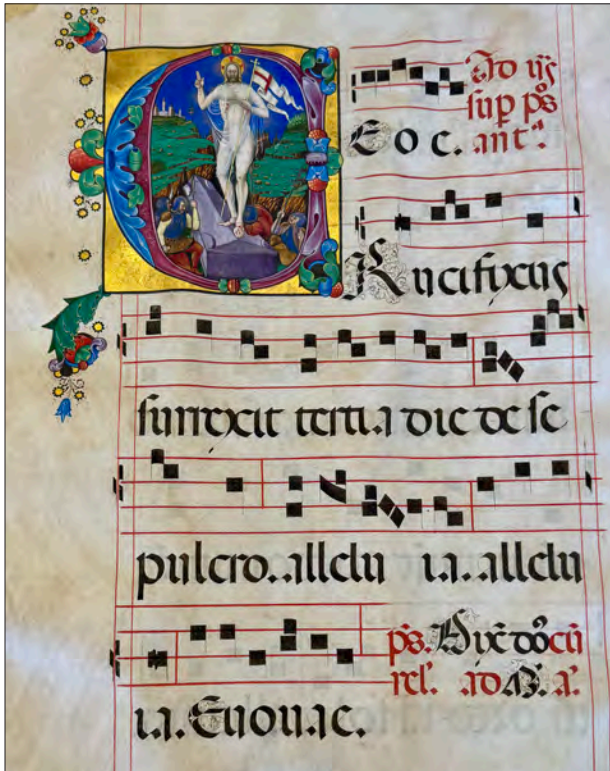 ant.
CRucifixus
surrexit tertia die de se
pulcro. allelu ia. allelu
ps. Dix̄ dōo cū
rel. ad B. a.
ia. Euouae.